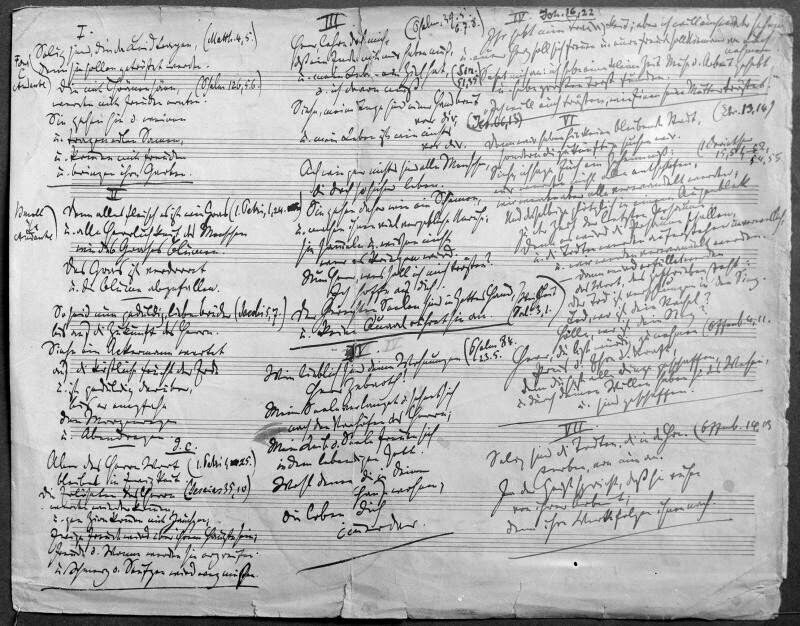 I.
Selig sind, die da Leid tragen, (Matth. 4, 5.
denn sie sollen getröstet werden.
Die mit Thränen säen, (Psalm 126, 5.6.
werden mit Freuden ernten.
Sie gehen hin u. weinen
u. tragen edlen Samen,
u. kommen mit Freuden
u. bringen ihre Garben.
II
Denn alles Fleisch es ist wie Gras (1. Petri, 1, 24.
u. alle Herrlichkeit des Menschen
wie des Grases Blumen.
Das Gras ist verdorret
u. die Blume abgefallen.
So seid nun geduldig, lieben Brüder (Jacobi 5, 7.
bis auf die Zukunft des Herrn.
Siehe ein Ackermann wartet
auf die köstliche Frucht der Erde
u. ist geduldig darüber,
bis er empfahe
den Morgenregen
u. Abendregen.
D.C.
Aber des Herren Wort (1. Petri 1, 25.
bleibet in Ewigkeit
Die Erlöseten des Herren (Jesaias 35, 10
werden wiederkommen
u. gen Zion kommen mit Jauchzen,
ewige Freude wird über ihrem Haupte sein,
Freude u. Wonne werden sie ergreifen
u. Schmerz u. Seufzen wird weg müssen.
III
Herr lehre doch mich, (Psalm. 39.
daß ein Ende mit mir haben muß,
u. mein Leben ein Ziel hat,
u. ich davon muß.
Siehe, meine Tage sind einer Handbreit
vor dir,
u. mein Leben ist wie nichts
vor dir.
Ach wie gar nichts sind alle Menschen,
die doch so sicher leben.
Sie gehen daher wie ein Schemen,
u. machen ihnen viel vergebliche Unruhe;
sie sammeln u. wissen nicht
wer es kriegen wird.
Nun Herr, wess soll ich mich trösten?
Ich hoffe auf dich.
Der Gerechten Seelen sind in Gottes Hand,
u. keine Qual rühret sie an.
IV.
Wie lieblich sind deine Wohnungen (Psalm 84.
Herr Zebaoth!
Meine Seele verlanget u. sehnet sich
nach den Vorhöfen des Herrn;
Mein Leib u. Seele freuen sich
in dem lebendigen Gott.
Wohl denen die in deinem
Hause wohnen,
die loben dich
immerdar.
IV Joh. 16, 22.
Ihr habt nun Traurigkeit; aber ich will euch wieder sehen
u. euer Herz soll sich freuen u. eure Freude soll Niemand von euch
nehmen
Sehet mich an: ich habe eine kleine Zeit Mühe u. Arbeit gehabt
u. habe großen Trost funden.
Ich will euch trösten, wie Einen seine Mutter tröstet.
VI
Denn wir haben hie keine bleibende Statt, (Ebr. 13, 14
sondern die zukünftige suchen wir.
Siehe, ich sage euch ein Geheimniß:
wir werden nicht alle entschlafen,
wir werden aber alle verwandelt werden;
und dasselbige plötzlich in einem Augenblick
zu der Zeit der letzten Posaune.
Denn es wird die Posaune schallen,
u. die Todten werden auferstehen unverweslich
u. wir werden verwandelt werden.
Dann wird erfüllet werden
das Wort, das geschrieben steht:
Der Tod ist verschlungen in den Sieg.
Tod, wo ist dein Stachel?
Hölle wo ist dein Sieg?
Herr, du bist würdig zu nehmen (Offenb. 4, 11.
Preis u. Ehre u. Kraft,
denn du hast alle Dinge geschaffen,
u. durch deinen Willen haben sie das Wesen,
u. sind geschaffen.
VII
Selig sind die Todten, die in dem Herrn (Offenb. 14, 13
sterben, von nun an.
Ja der Geist spricht, daß sie ruhen
von ihrer Arbeit;
denn ihre Werke folgen ihnen nach.